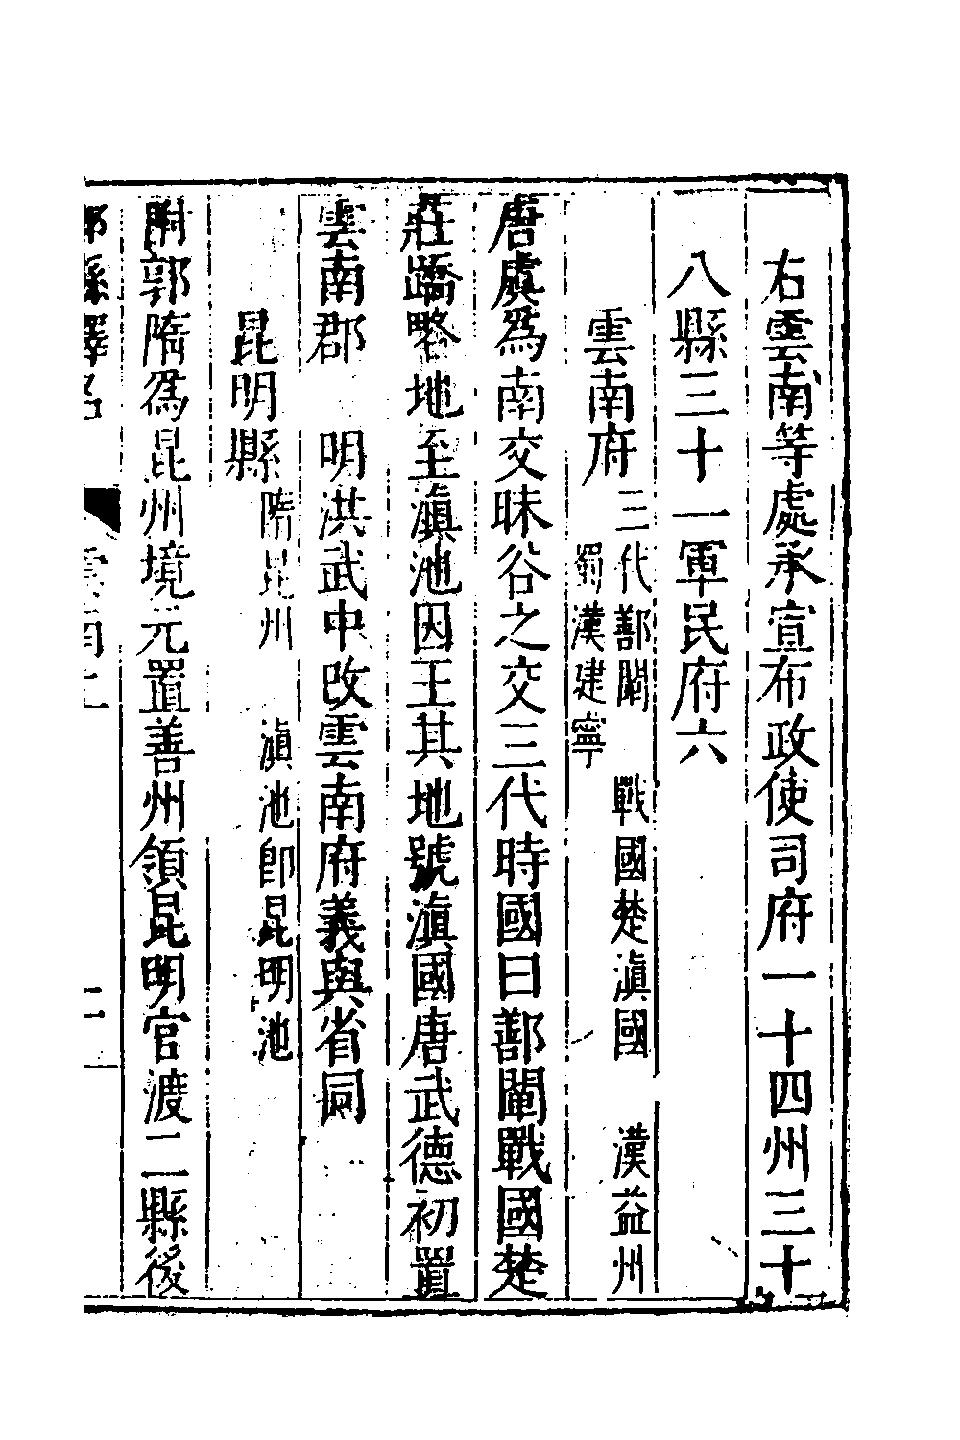 右雲南等處承宣布政使司府一十四州三十
八縣三十一軍民府六
雲南府三代鄯闡　戰國楚滇國　漢益州
蜀漢建寧
唐虞爲南交昧谷之交三代時國曰鄯闡戰國楚
莊蹻略地至滇池因王其地號滇國唐武德初置
雲南郡　明洪武中改雲南府義與省同
昆明縣隋昆州　滇池卽昆明池
附郭隋爲昆州境元置善州領昆明官渡二縣後
郡縣釋名　雲南上　二